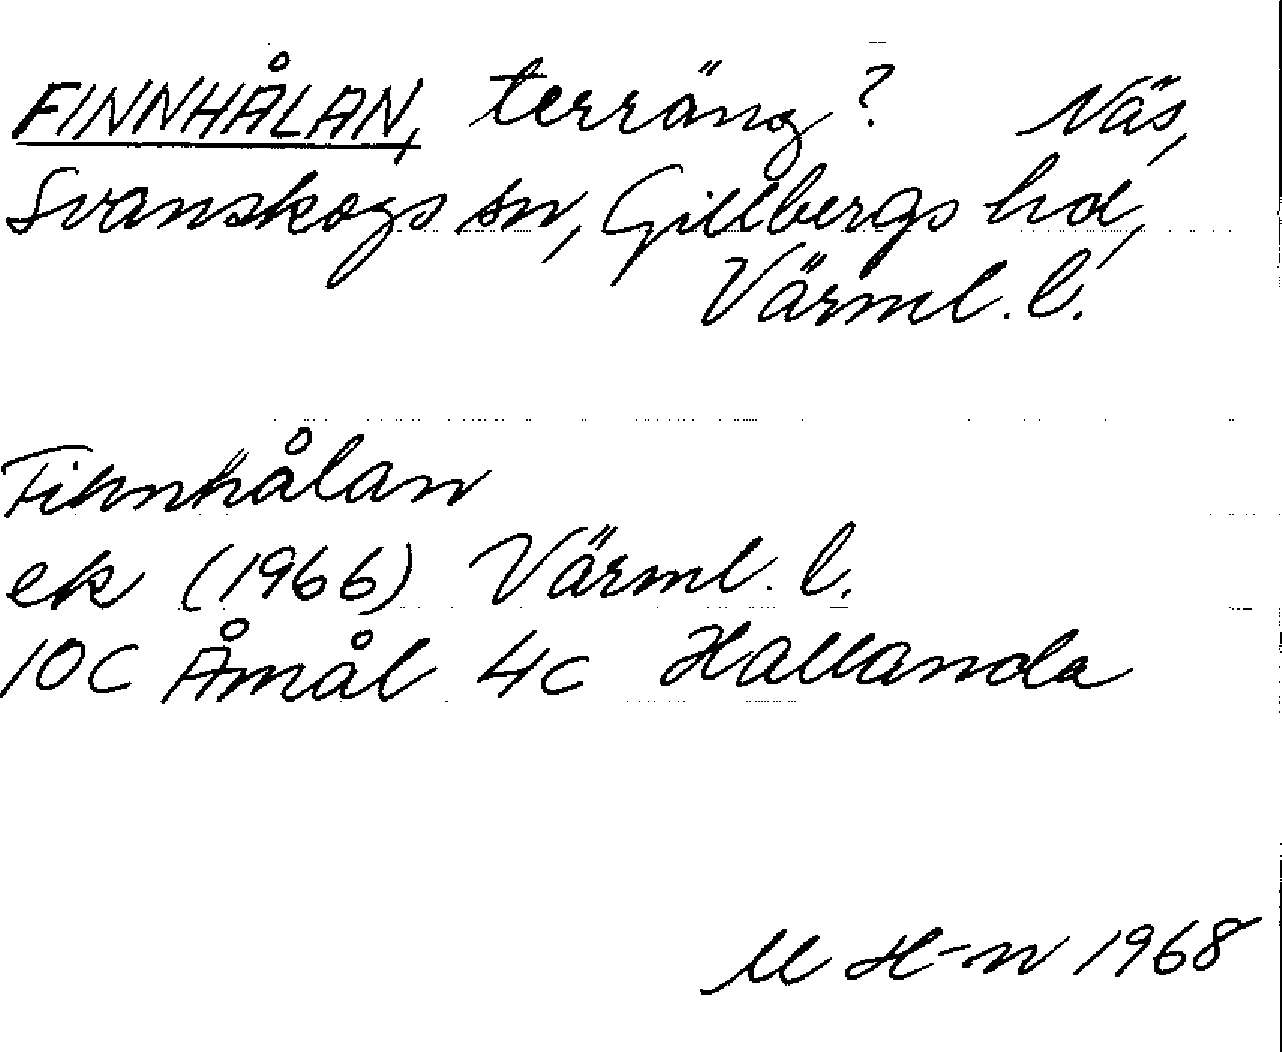 FINNHÅLAN, terräng? Näs,
Svanskogs sn, Gillbergs hd,
Värml. l.
Finnhålan
ek (1966) Värml. l.
10C Åmål 4c Hallanda
M H-n 1968